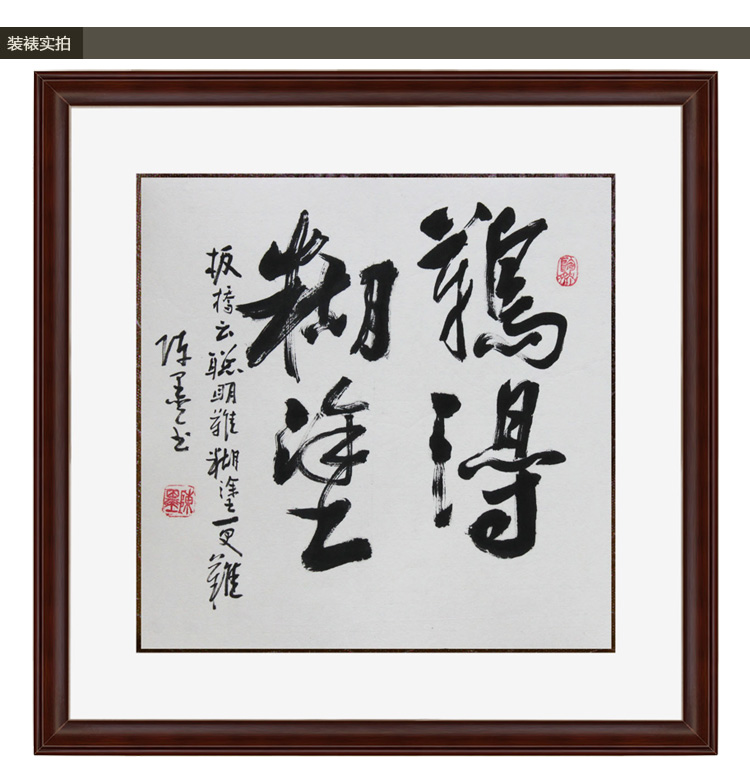 装裱实拍
難得
糊塗
板橋云聰明難糊塗更難
陈墨书
陳墨